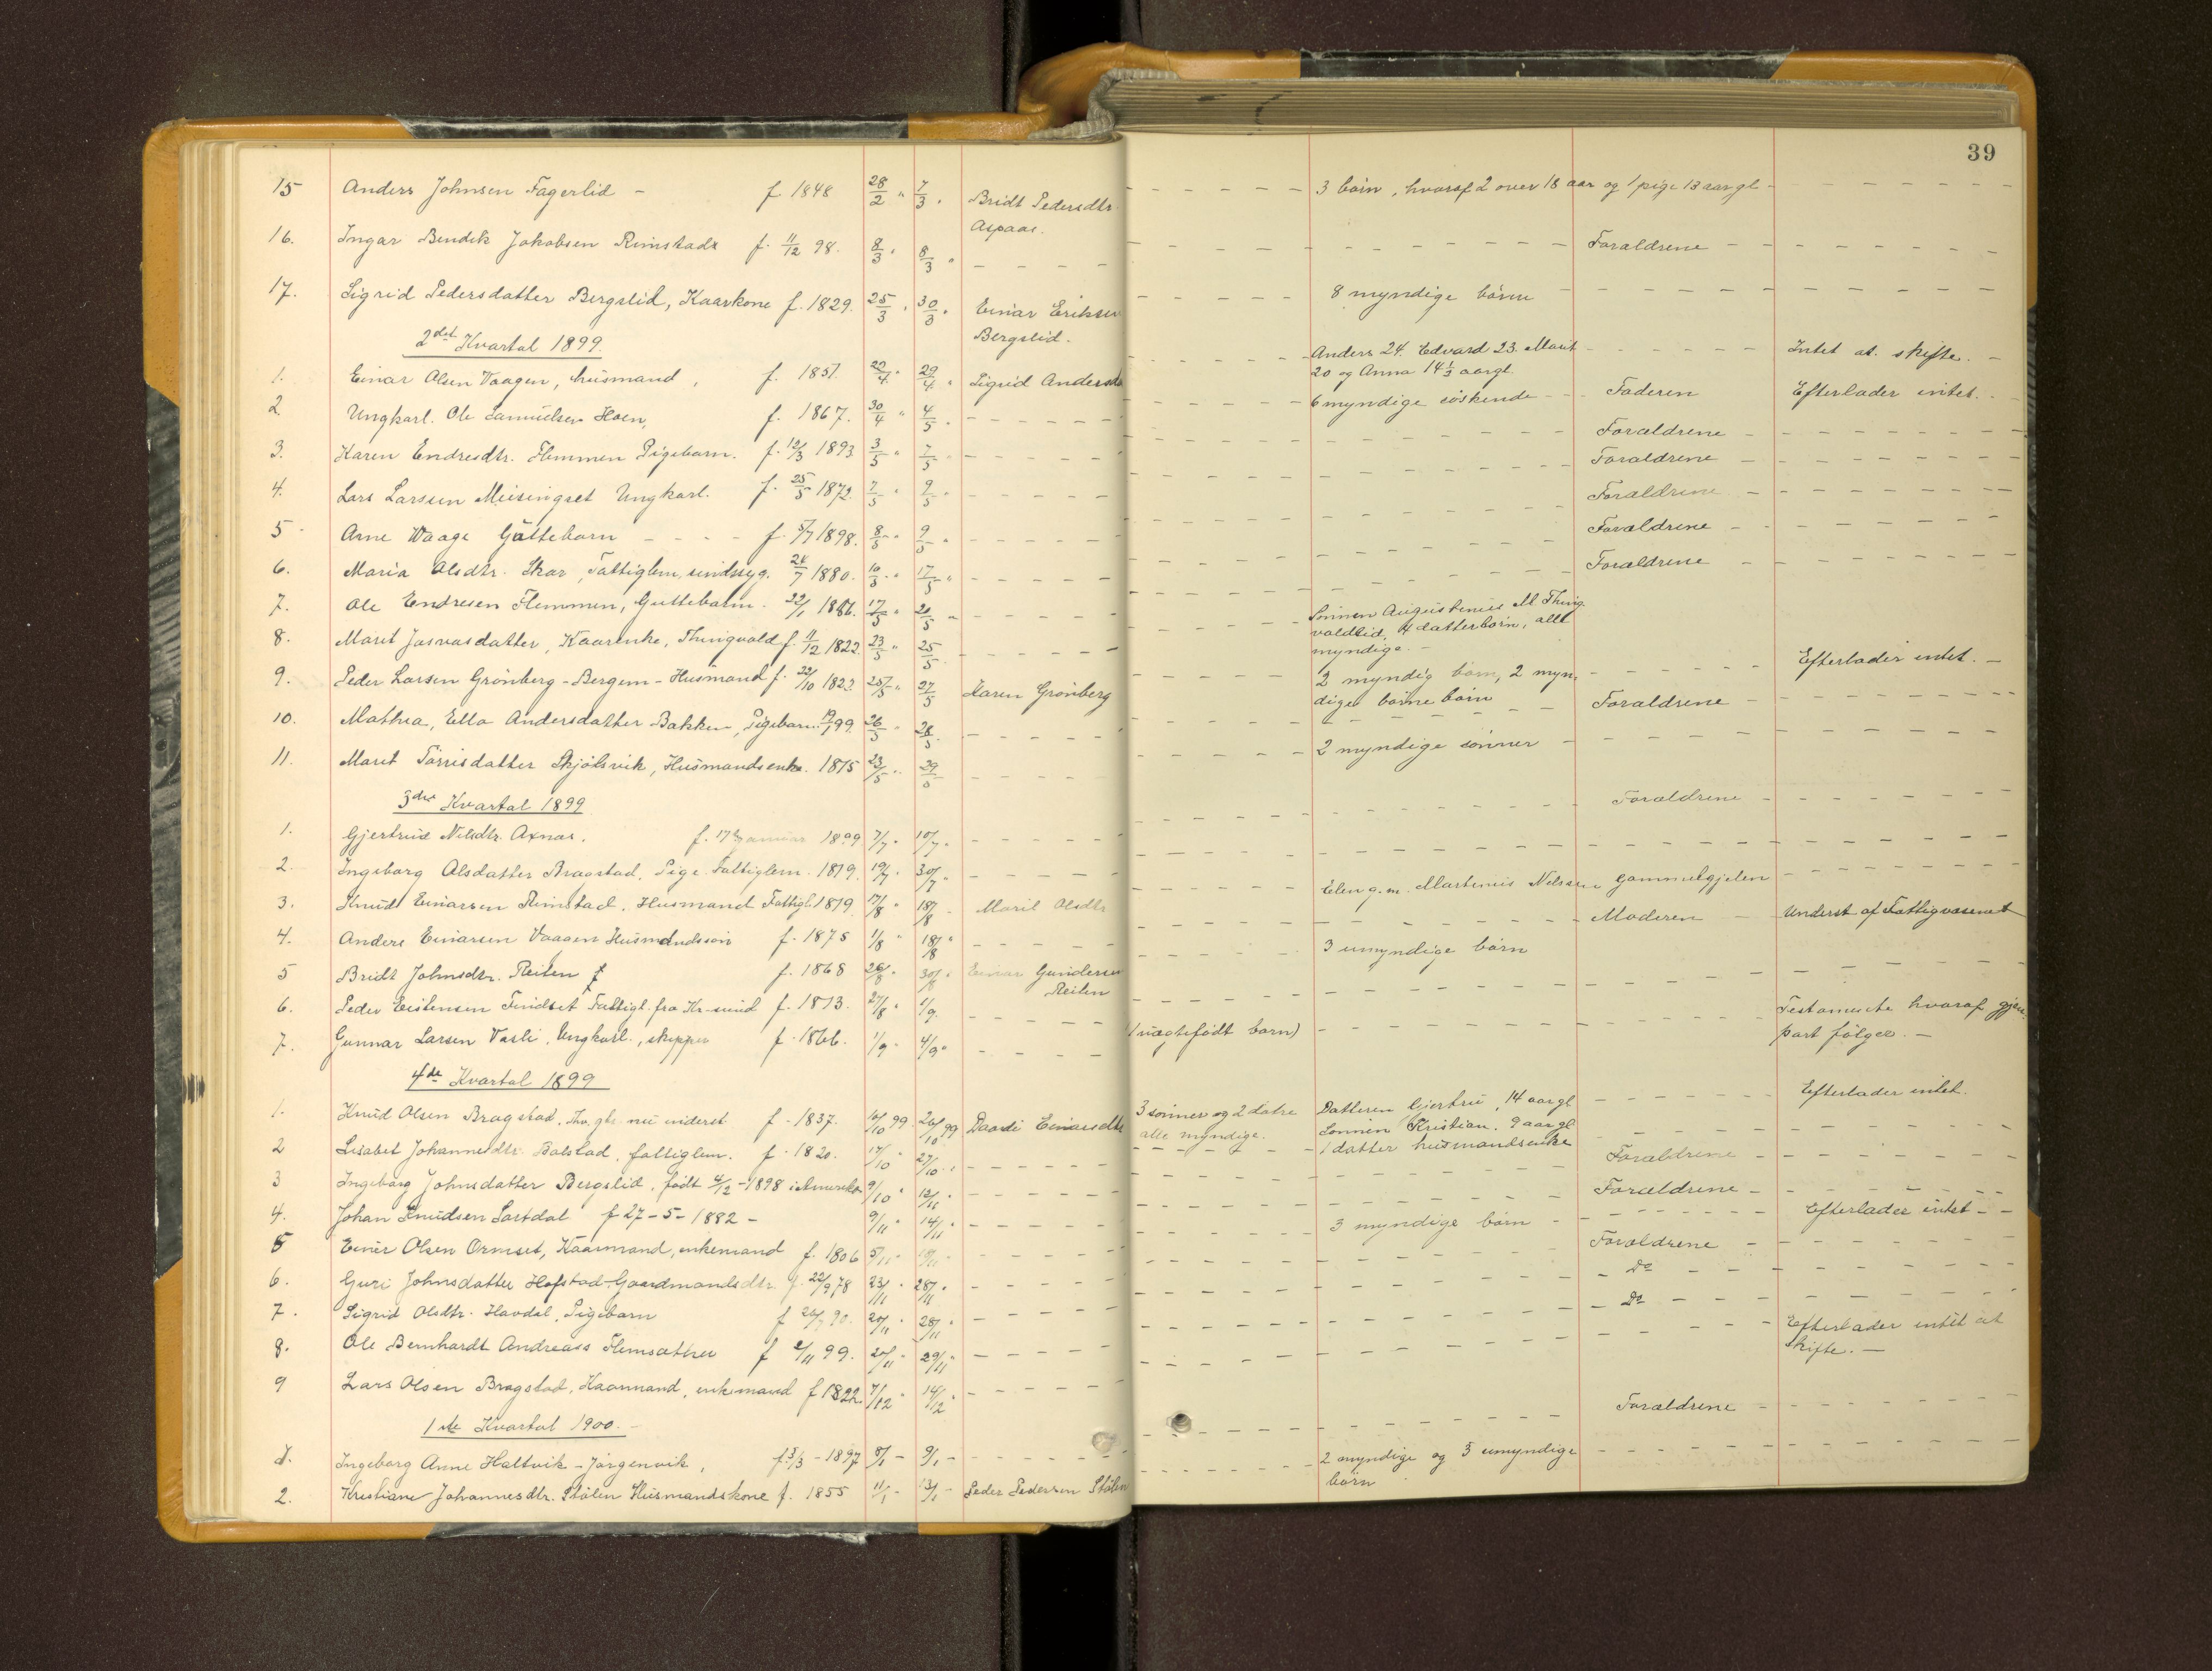 39
15 Anders Johnsen Fagerlid - f. 1848 28/2 " 7/3 " Bridt Pedersdtr. - - - - - 3 börn, hvoraf 2 over 18 aar og 1 pige 13 aar gl. - - - - - -
Aspaas.
16. Ingar Bendik Jakobsen Rimstad f. 11/12 98. 8/3 " 8/3 " - - - - Forældrene - - - - -
17. Sigrid Pedersdatter Bergslid, Kaarkone f. 1829. 25/3 " 30/3 " Einar Eriksen - - - - 8 myndige börn - - - - -
Bergslid.
2det Kvartal 1899.
1. Einar Olsen Vaagen, husmand, f. 1851. 22/4 " 29/4 " Sigrid Andersdtr - - - - Anders 24. Edvard 23. Marit - - - - - Intet at skifte. -
20 og Anna 14 1/3 aargl.
2 Ungkarl. Ole Samuelsen Hoen, f. 1867. 30/4 " 4/5 " - - - - 6 myndige söskende - - Faderen Efterlader intet. -
3. Karen Endresdtr. Flemmen Pigebarn. f. 12/3 1893 3/5 " 7/5 " - - - - Forældrene - - - - -
4. Lars Larssen Meisingset Ungkarl. f. 25/5 1872. 7/5 " 9/5 " - - - - Forældrene - - - - -
5 Arne Waage Gutteborn - - - - f. 5/7 1898. 8/5 " 9/5 " - - - - Forældrene - - - - -
6. Maria Olsdtr. Skar, Fattiglem, sindssyg. 24/7 1880. 10/5 " 17/5 " - - - - Forældrene - - - - -
7. Ole Endresen Flemmen, Guttebarn. 22/1 17/5 " 20/5 " - - - - Forældrene - - - - -
8. Marit Jasvasdatter, Kaarenke, Thingvold f. 11/12 1822. 23/5 " 25/5 " - - - - Sönnen Augustinius M. Thing
valdlid, 4 datterbörn, alle
myndige. -
9. Peder Larsen Grönberg - Bergem - Husmand f. 22/10 1822 25/5 " 27/5 Karen Grönberg - - - - 2 myndig börn, 2 myn- - - - - Efterlader intet. -
dige börne börn
10. Mathea, Ella Andersdatter Bakken, Pigebarn. 99. 26/5 " 28/5 " - - - - Forældrene - - - - -
11. Marit Törrisdatter Skjölsvik, Husmandsenke. 1815 23/5 " 29/5 - - - - 2 myndige sönner - - - - -
3die Kvartal 1899
1. Gjertrud Nilsdtr. Axnæs. f. 17 januar 1899 7/7 " 10/7 " - - - - Forældrene - - - - -
2. Ingeborg Olsdatter Bragstad. Pige Fattiglem. 1819. 19/7 " 30/7 " - - - - -
3. Knud Einarsen Rimstad. Husmand Fattigl. 1819. 17/8 " 18/8 " Marit Olsdtr - - - - Elen g. m. Martinius Nilssen Gammelgjelen - - - - -
4. Anders Einarsen Vaagen Husmandssön f. 1875 1/8 " 18/8 " - - - - Moderen - Underst. af Fattigvæsenet
5 Bridt Johnsdtr. Reiten f. 1868 26/8 " 30/8 " Einar Gundersen - - - - 3 umyndige börn - - - - -
Reiten
6. Peder Eistensen Findset Fattigl. fra Kr-sund f. 1813. 27/8 " 1/9. - - - - -
7. Gunnar Larsen Vasli, Ungkarl., skipper f. 1866. 1/9 " 4/9 " - - - - (uægtefödt barn) - - - - Testamente hvoraf gjen-
part fölger. -
4de Kvartal 1899
1. Knud Olsen Bragstad. f. 1837. 16/10 99. 26/10 99 Daardi Einarsdtr 3 sönner og 2 dötre Datteren Gjertru, 14 aar gl. - - - - - Efterlader intet.
alle myndige. Sönnen Kristian, 9 aar gl.
2 Lisabet Johannesdtr. Bolstad, fattiglem. f. 1820. 17/10 27/10 " - - - - 1 datter husmandsenke - - - - -
3 Ingeborg Johnsdatter Bergslid, födt 4/12 - 1898 i Amerika 9/10 " 12/11 " - - - - Forældrene - - - - -
4. Johan Knudsen Sartdal f 27-5-1882 - 9/11 " 14/11 " - - - - Forældrene - - - - -
5 Einar Olsen Ormset, Kaarmand, enkemand f. 1806 5/11 " - - - - 3 myndige börn - - - - - Efterlader intet - -
6. Guri Johnsdatter Hofstad Gaardmandsdtr. f. 22/9 78 23/11 " 28/11 " - - - - Forældrene - - - - -
7. Sigrid Olsdtr. Havdal, Pigebarn f 90. 20/11 " 28/11 " - - - - Do - - - - -
8. Ole Bernhardt Andreas Flemsæther f 2/11 99. 20/11 " 29/11 " - - - - Do - - - - -
9 Lars Olsen Bragstad, Kaarmand, enkemand f 1822. 7/12 " 14/12 " - - - - - Efterlader intet at
skifte. -
1ste Kvartal 1900. -
1. Ingeborg Anne Haltvik - Jörgenvik, f. 5/3 - 1897 5/1 - 9/1 - - - - - Forældrene - - - - -
2. Kristiane Johannesdtr. Stölen Husmandskone f. 1855 11/1 - 13/1 - Peder Pedersen Stölen - - - - 2 myndige og 3 umyndige - - - - -
börn